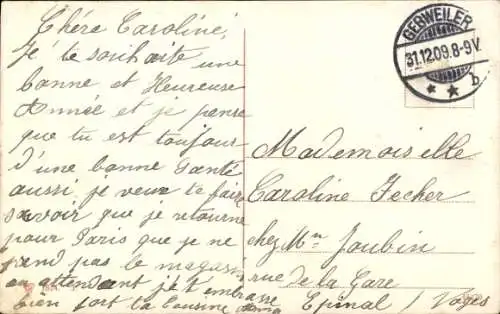 Chére Caroline,
Je te souhaite une
bonne et Heureuse
Année et je pense
que tu est toujour
d'une bonne Santé
aussi, je veux te faire
savoir que je retourne
pour Paris que je ne
prend pas le magasin
en attendant je t'embrasse
bien fort ta Cousine
GEBWEILER
31.12.09.8-9V.
* * b
Mademoiselle
Caroline Fecher
chez Mme Joubin
rue de la Gare
Epinal / Vosges